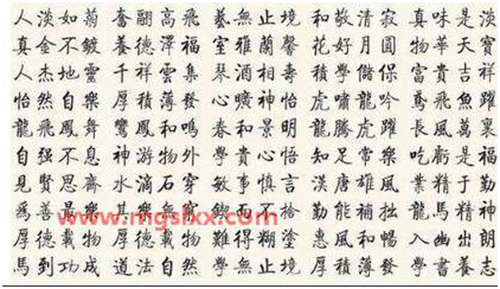 人淡如菊 奮翮高飛 藝無止境 和敬清寂 真味是淡
真金不鍍 養德澤福 室雅蘭馨 花好月圓 物華天寶
人杰地靈 千祥雲集 琴酒相壽 學儲 富貴吉祥
怡然自樂 厚積薄發 心曠神怡 虎嘯龍吟 鳶飛魚躍
龍飛鳳舞 鸞鳳和鳴 春和景明 龍騰虎躍 長風萬裏
自强不息 神游物外 和貴心悟 知足常樂 吃虧是福
見賢思齋 水滴石穿 敏事慎言 漢唐雄風 業精于勤
爲善最樂 其樂無窮 鍥而不捨 勤能補拙 龍馬精神
www.mgslxx.com
厚德載物 厚德載物 難得糊塗 惠風和暢 入幽出朗
馬到功成 道法自然 學無止境 厚積薄發 學書養志